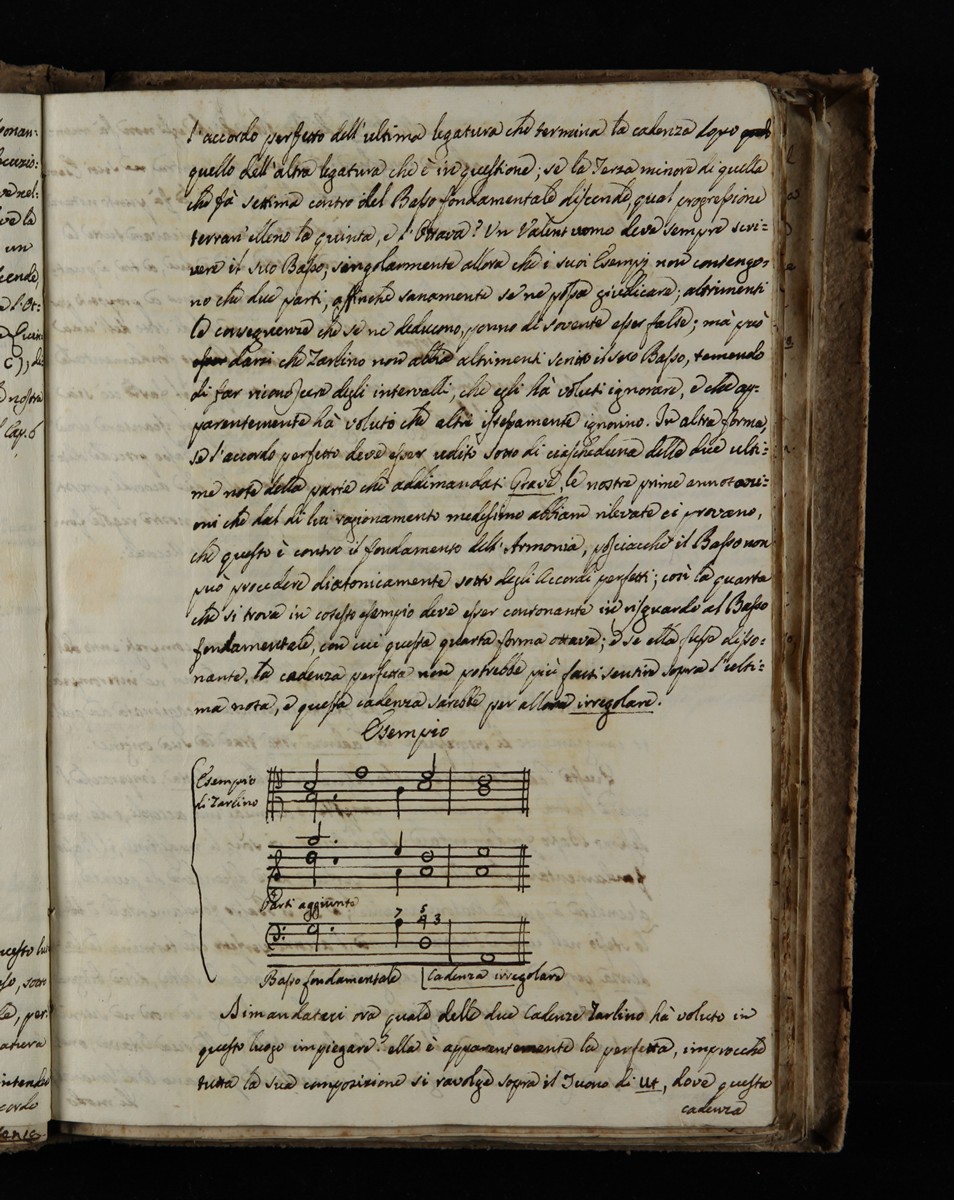 l'accordo perfetto dell'ultima legatura che termina la cadenza dopo
quello dell'altra legatura che è in questione; se la Terza minore di quella
che fà settima contro del Basso fondamentale discende, qual progressione
terran' elleno la quinta, e l'Ottava? Un Valent'uomo deve sempre scri=
vere il suo Basso; singolarmente allora che i suoi Esempj non contengo=
no che due parti, affinche sanamente se ne possa giudicare; altrimenti
le conseguenze che se ne deducono, ponno di sovente esser false; mà può
darsi che Zarlino non abbia altrimenti scritto il suo Basso, temendo
di far riconoscere degli intervalli, che egli hà voluti ignorare, e che ap=
parentemente hà voluto che altri istessamente ignorino. In altra forma,
se l'accordo perfetto deve esser udito sotto di ciascheduna delle due ulti=
me note della parte che addimandati Grave, le nostre prime annotazi=
oni che dal di lui ragionamento medesimo abbiam rilevate ci provano,
che questo è contro il fondamento dell'Armonia, posciacchè il Basso non
può procedere diatonicamente sotto degli Accordi perfetti; così la quarta
che si trova in cotesto esempio deve esser consonante in risguardo al Basso
fondamentale, con cui questa quarta forma ottava; e se ella fusse disso=
nante, la cadenza perfetta non potrebbe più farsi sentire sopra l'ulti=
ma nota, e questa cadenza sarebbe per allora irregolare.
Esempio
Esempio
di Zarlino
Parti aggiunte
7 5 4 3
Basso fondamentale Cadenza irregolare
Dimandateci ora quale delle due Cadenze Zarlino hà voluto in
questo luogo impiegare? ella è apparentemente la perfetta, imperocchè
tutta la sua composizione si ravolge sopra il Tuono di Ut, dove questa
cadenza